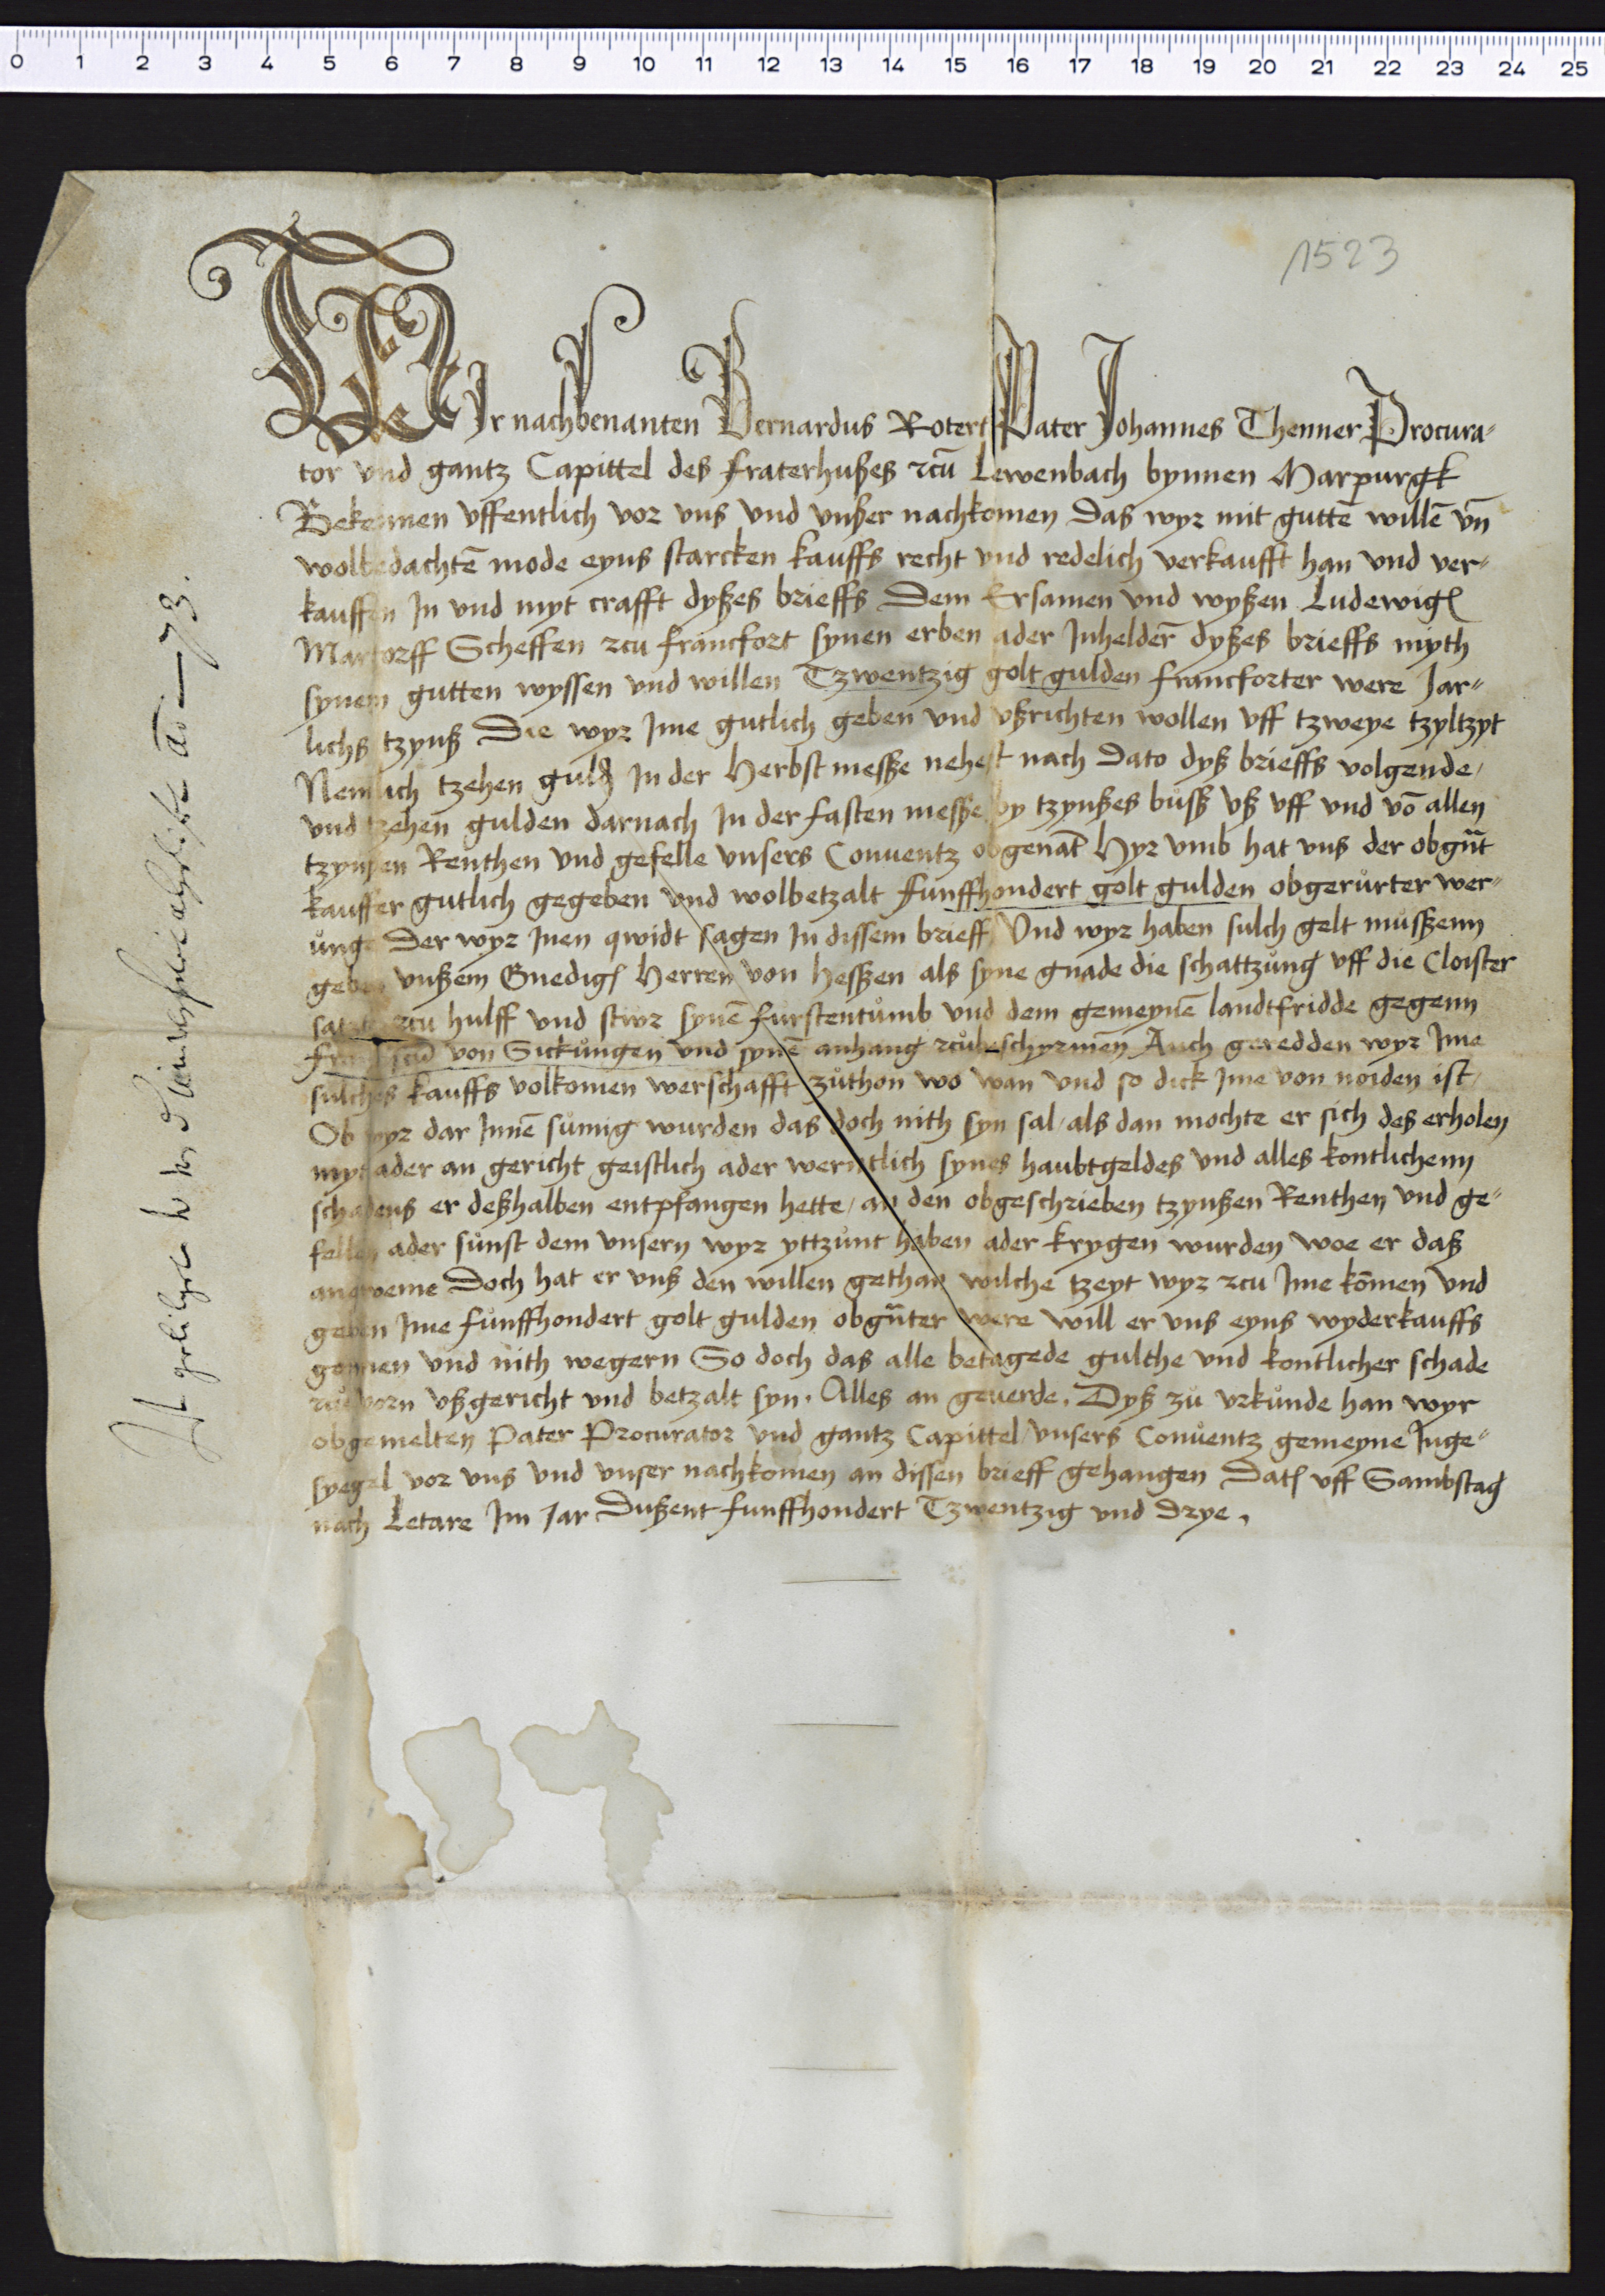 1523
WIr nachbenanten Bernardus Rotert Pater Johannes Thenner Procura-
tor vnd gantz Capittel des fraterhußes zcū Lewenbach bynnen Marpurgk
Bekennen vffentlich vor vns vnd vnßer nachkomen Das wyr mit guttē willē vn̄
wolbedachtē mode eyns starcken kauffs recht vnd redelich verkaufft han vnd ver-
kauffen In vnd myt crafft dyßes brieffs Dem Ersamen vnd wyßen Ludewigẽ
Martorff Scheffen zcu franckfort synen erben ader Inhelder̄ dyßes brieffs myth
synem gutten wyssen vnd willen Tzwentzig golt gulden franckforter were Jar-
lichs tzynß Die wyr Ime gutlich geben vnd vßrichten wollen vff tzweye tzyltzyt
Nemlich tzehen guld In der Herbstmesße nehest nach Dato dyß brieffs volgende,
vnd tzehen gulden darnach In der fasten mesße by tzynßes bůsß vß vff vnd vō allen
tzynßen Renthen vnd gefelle vnsers Conuentz obgenāt Hyr vmb hat vns der obgn̄t
kauffer gutlich gegeben vnd wolbetzalt funffhondert golt gulden obgerůrter wer-
ůnge Der wyr Inen qwidt sagen In dissem brieff Vnd wyr haben sulch gelt můsßenn
geben vnßem Gnedigẽ Herren von Hesßen als syne gnade die schattzůng vff die Cloister
satzte zcu hulff vnd stwr synē furstentůmb vnd dem gemeynē landtfridde gegenn
franciscū von Sickůngen vnd synē anhang zcůbeschyrmen Auch geredden wyr Ime
sulches kauffs volkomen werschafft zůthon wo wan vnd so dick Ime von noiden ist,
Ob wyr dar Innē sůmig wurden das doch nith syn sal, als dan mochte er sich des erholen
myt ader an gericht geistlich ader werntlich synes haubtgeldes vnd alles kontlichenn
schadens er deßhalben entpfangen hette, an den obgeschrieben tzynßen Renthen vnd ge-
fellen ader sůnst dem vnsern wyr yttzůnt haben ader krygen wurden woe er daß
anqweme Doch hat er vnß den willen gethan wilche tzeyt wyr zcu Ime kōmen vnd
geben Ime fůnffhondert golt gulden obgn̄ter were will er vns eyns wyderkauffs
gonnen vnd nith wegern So doch das alle betagede gulthe vnd kontlicher schade
zůuorn vßgericht vnd betzalt syn. Alles an geuerde. Dyß zů vrkůnde han wyr
obgemelten Pater Procurator vnd gantz Capittel vnsers Conůentz gemeyne Inge-
syegel vor vns vnd vnser nachkomen an dissen brieff gehangen Datẽ vff Sambstag
nach Letare Im Jar Dußent funffhondert Tzwentzig vnd drye.